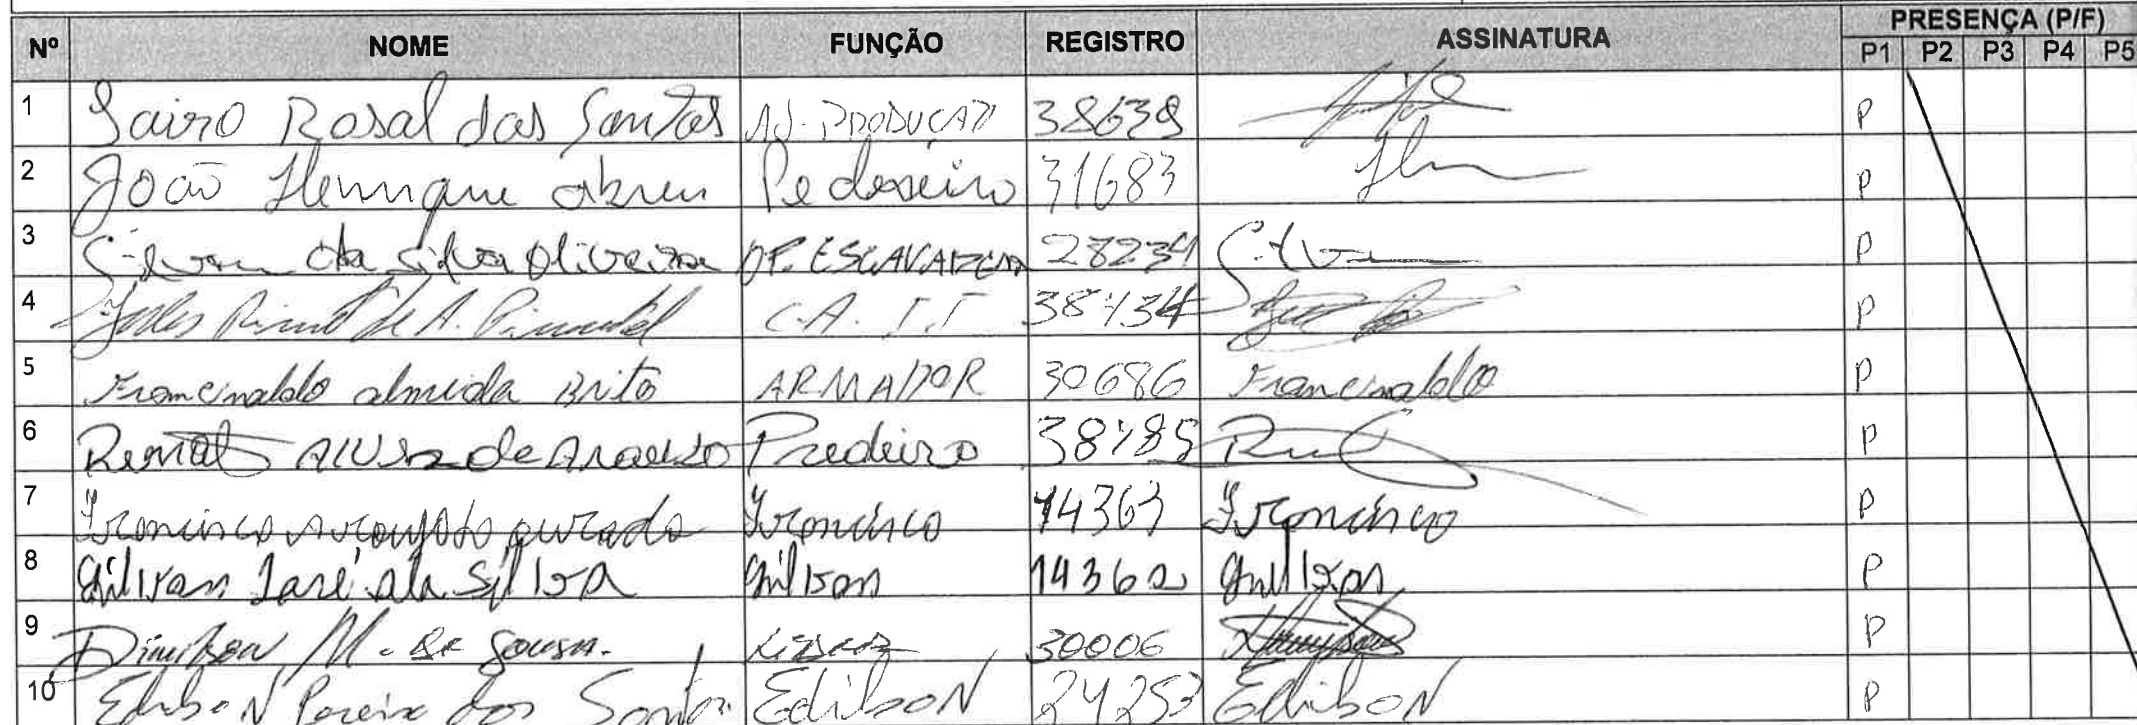 Nº NOME FUNÇÃO REGISTRO ASSINATURA PRESENÇA (P/F)
P1 P2 P3 P4 P5
1 Jairo Rosal das Santos AJ. PRODUÇAO 38639 P
2 João Henrique abreu Pedereiro 31683 P
3 Silvan da silva Oliveira OP. ESCAVADEIRA P
4 de A. Pimentel C.A. 38434 P
5 Francinaldo almeida Brito ARMADOR 30686 Francinaldo P
6 Renato de Araujo Predeiro P
7 Francisco Francisco 14363 Francisco P
8 Gilvan José da Silva Gilvan 14362 Gilvan P
9 M. de Sousa. 30006 P
10 Edilson Pereira dos Santos EdilsoN 24253 EdilsoN P